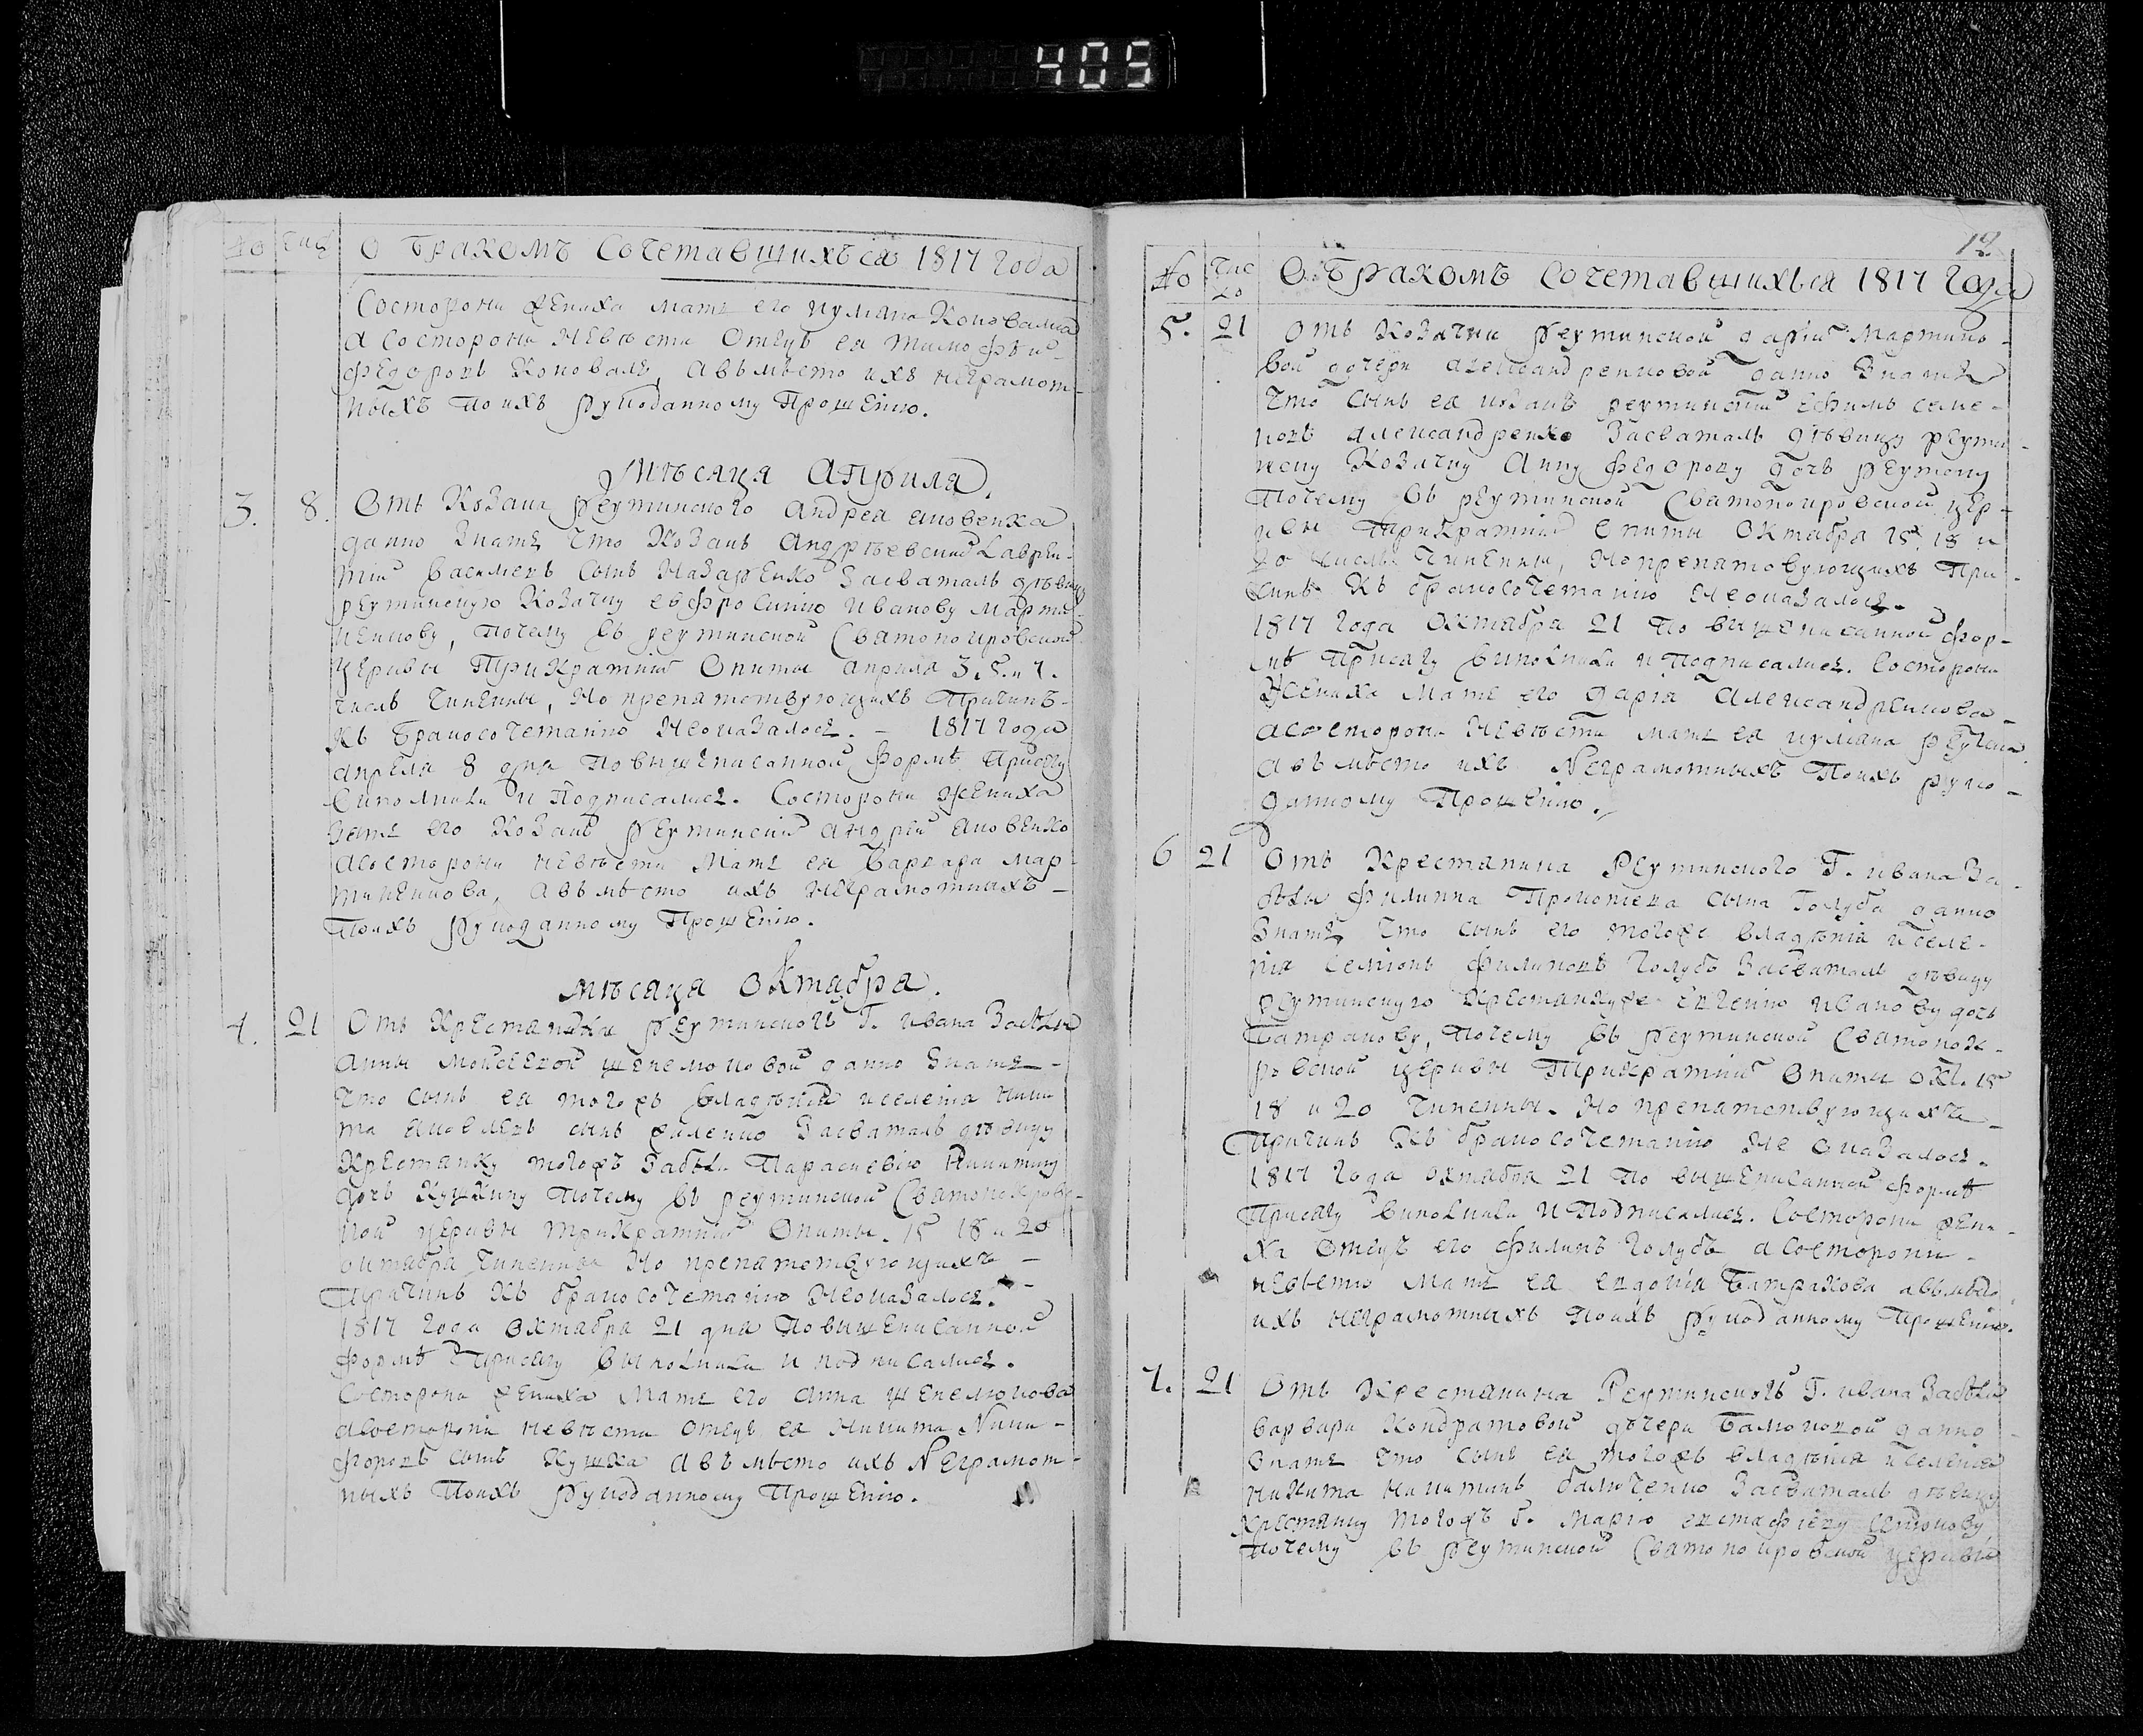 405
No Чис О бракомъ Сочетавшихъся 1817 года
Состороны жениха мать его иулияна Коновалова
а Состороны Невѣсты Отецъ ея тимофѣй
Федоровъ Коновалъ, авъмѣсто ихъ неграмот-
ныхъ поихъ рукоданному Прошению.
Мѣсяца Априля.
3. 8. Отъ Козака реутинского андрея яковенка
данно знать что Козакъ Андрѣевский Лаврен-
тий василевъ сынъ Назаренко засваталъ дѣвицу
реутинскую Козачку евфросинию иванову марти-
ненкову, почему въ реутинской Святопокровской
Церквы Трикратнии Опиты априля 3. 5. и 7.
числъ Чиненны, Но препятствующихъ Причинъ
къ бракосочетанию Неоказалось. - 1817 года
апреля 8 дня Повышеписанной формѣ Присягу
виполнили и Подписались. Состороны жениха
зять его Козакъ реутинский андрей яковенко
асостороны невѣсты Мать ея варвара мар-
тиненкова, авъмѣсто ихъ неграмотныхъ
поихъ рукоданному Прошению.
мѣсяца октября.
4. 21 Отъ Крестянки реутинской Г. ивана Забѣлы
анны мойсеевой шепелюковой данно знать
что сынъ ея тогожъ владѣния иселения ники-
та яковлевъ сынъ засваталъ дѣвицу
Крестянку тогожъ Забѣлы Параскевию Никитину
дочь Кушкину почему въ реутинской Святопокровс-
кой церквы трикратнии Опиты. 15 18 и 20
октября Чиненны Но препятствующихъ
причинъ къ бракосочетанию Неоказалось.
1817 года Октября 21 дня Повышеписанной
формѣ присягу выполнили и подписались.
Состороны жениха Мать его анна шепелюкова
асостороны невѣсты отецъ ея никита Ники-
форовъ сынъ Кушка авъмѣсто ихъ Неграмот-
ныхъ Поихъ рукоданному Прошению.
12
No Чис ло О бракомъ Сочетавшихъся 1817 года
5. 21 отъ Козачки реутинской дарии Мартино-
вой дочери александренковой данно знать
что сынъ ея козакъ реутинский Ефимъ семе-
новъ александренко засваталъ дѣвицу реути-
нскую Козачку Анну федорову дочь реутову
почему въ реутинской Святопокровской цер-
квы трикратнии опиты Октября 15. 18 и
20 числъ Чиненны, Но препятствующихъ При-
чинъ къ бракосочетанию Неоказалось.
1817 года Октября 21 по вишеписанной фор-
мѣ Присягу виполнили и Подписались. Состороны
Жениха Мать его дария Александренкова
асостороны Невѣсты мать ея иулияна реутова
авъмѣсто ихъ Неграмотныхъ Поихъ руко-
данному Прошению.
6 21 Отъ Крестянина Реутинского Г. ивана За-
бѣлы филиппа Прокопиева сына Голуба данно
Знать что сынъ его тогоже владѣния иселе-
ния Семионъ Филиповъ голубъ засваталъ дѣвицу
реутинскую Крестянкуже Евгению иванову дочь
батракову, почему въ реутинской Святопок-
ровской церквы Трикратнии опиты окт. 15
18 и 20 чиненны. Но препятствующихъ
причинъ Къ бракосочетанию Не оказалось.
1817 года октября 21 по вышеписанной формѣ
Присягу виполнили и Подписались. Состороны жени-
ха отецъ его филипъ голубъ а состороны
невѣсты мать ея евдокия батракова авъмѣсто
ихъ неграмотныхъ поихъ рукоданному Прошению.
7. 21 Отъ Крестянина Реутинской Г. ивана Забѣлы
варвары Кондратовой дочери данно
знать что сынъ ея тогожъ владѣния иселения
никита никитинъ засваталъ дѣвицу
Крестянку тогожъ Г. Марию евстафиеву
почему въ реутинской Святопокровской церквы